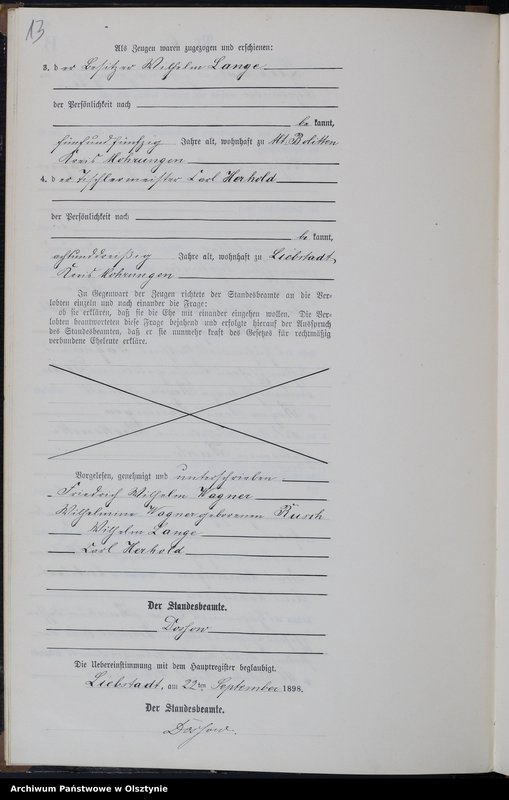 13
Als Zeugen waren zugezogen und erschienen:
3. der Besitzer Wilhelm Lange
der Persönlichkeit nach
be kannt,
fünfundfünfzig Jahre alt, wohnhaft zu Alt Bolitten
Kreis Mohrungen
4. der Tischlermeister Carl Herhold
der Persönlichkeit nach
be kannt,
achtunddreißig Jahre alt, wohnhaft zu Liebstadt,
Kreis Mohrungen
In Gegenwart der Zeugen richtete der Standesbeamte an die Ver-
lobten einzeln und nach einander die Frage:
ob sie erklären, daß sie die Ehe mit einander eingehen wollen. Die Ver-
lobten beantworteten diese Frage bejahend und erfolgte hierauf der Ausspruch
des Standesbeamten, daß er sie nunmehr kraft des Gesetzes für rechtmäßig
verbundene Eheleute erkläre.
Vorgelesen, genehmigt und unterschrieben
Friedrich Wilhelm Wagner
Wilhelmine Wagner geborenen Rusch
Wilhelm Lange
Carl Herhold
Der Standesbeamte.
Die Uebereinstimmung mit dem Hauptregister beglaubigt.
Liebstadt, am 22ten September 1898.
Der Standesbeamte.
Archiwum Państwowe w Olsztynie